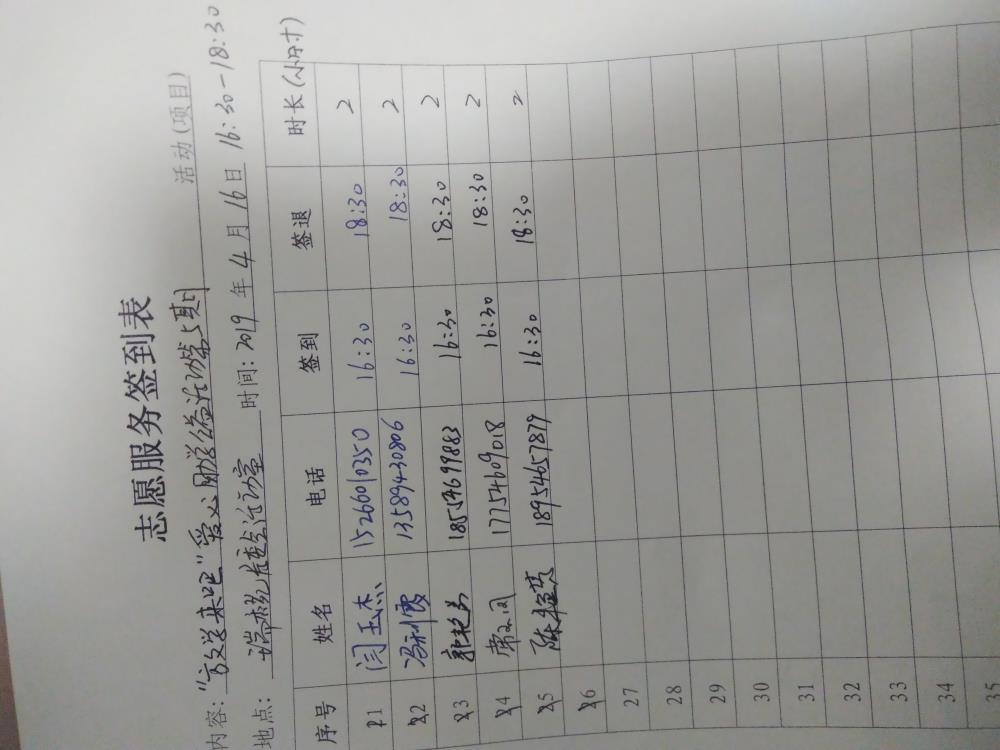 志愿服务签到表
内容:"放学来吧"爱心助学公益活动第5期 活动(项目)
地点: 瑞彩社区活动室 时间: 2019 年 4 月 16 日 16:30-18:30
序号 姓名 电话 签到 签退 时长(小时)
1 闫玉杰 15266010350 16:30 18:30 2
2 冯利霞 13589430806 16:30 18:30 2
3 郭艳芳 18554699883 16:30 18:30 2
4 常 17754609018 16:30 18:30 2
5 陈 18954657879 16:30 18:30 2
6
27
28
29
30
31
32
33
34
35